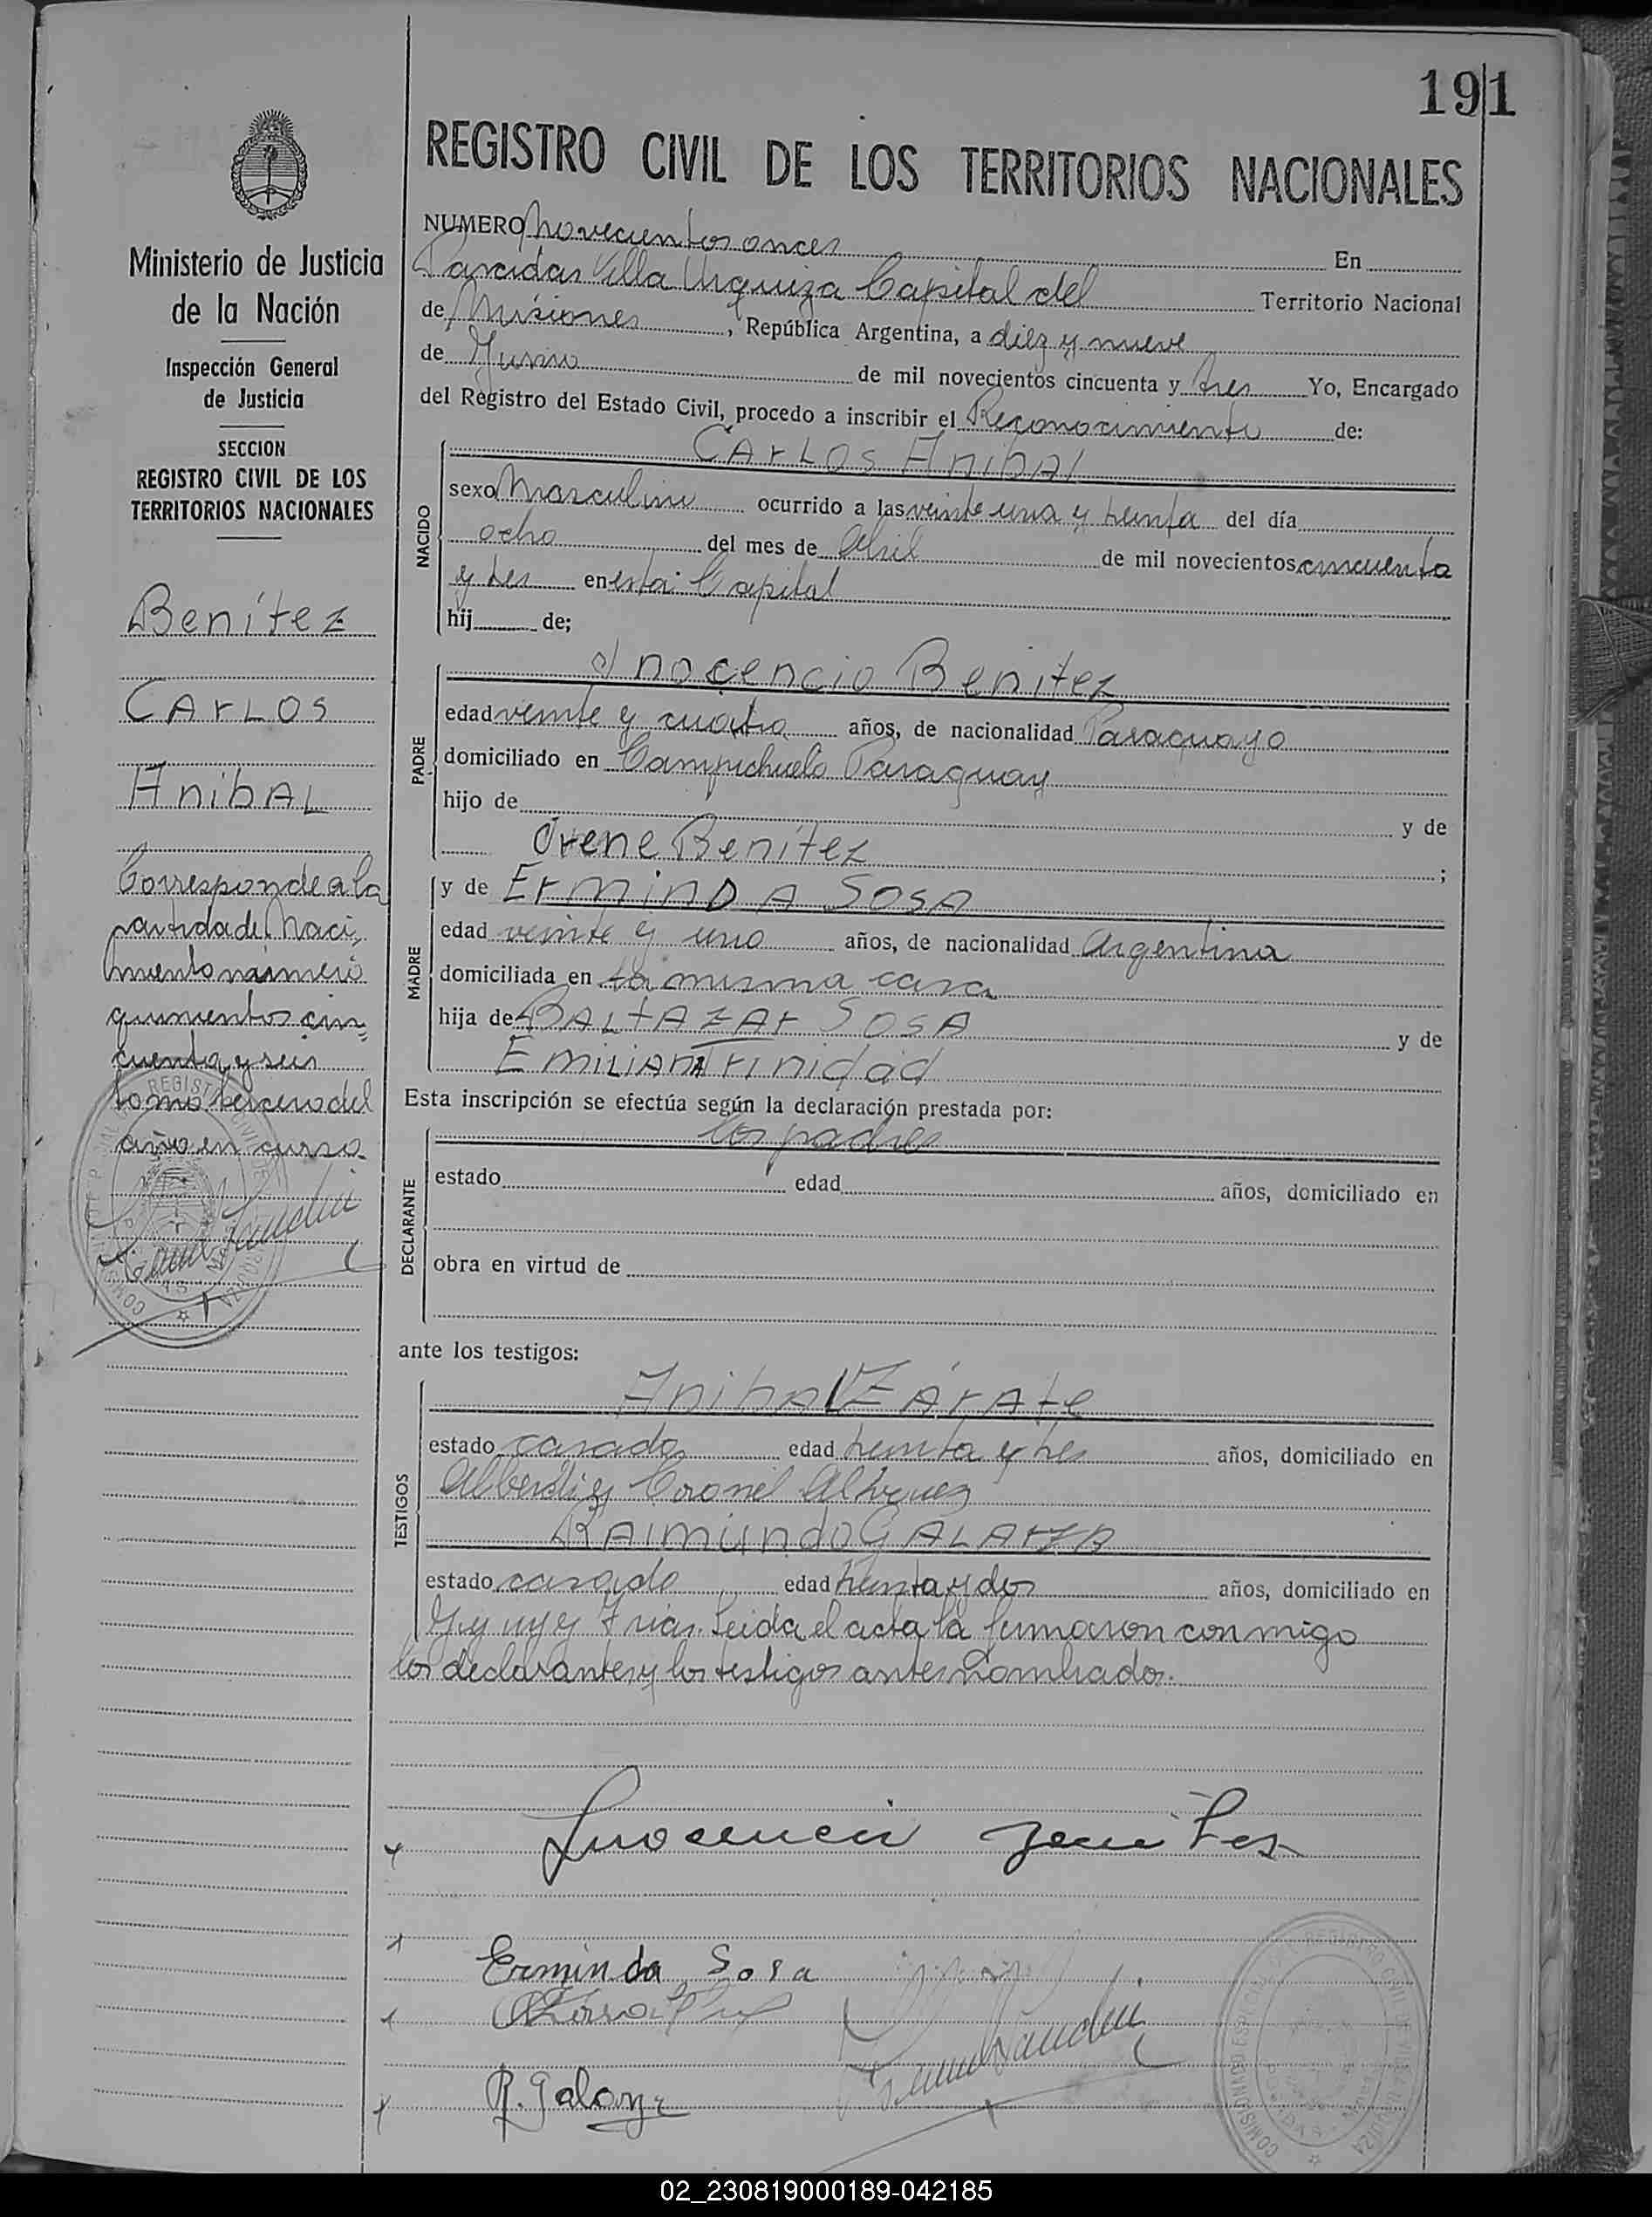 191
REGISTRO CIVIL DE LOS TERRITORIOS NACIONALES
Ministerio de Justicia
de la Nación
Inspección General
de Justicia
SECCION
REGISTRO CIVIL DE LOS
TERRITORIOS NACIONALES
Benítez
CARLOS
AnibAL
Corresponde a la
partida de Naci-
miento número
quinientos cin-
cuenta y seis
tomo tercero del
año en curso
NUMERO novecientos onces En
Posadas Villa Urquiza Capital del Territorio Nacional
de Misiones, República Argentina, a diez y nueve
de Junio de mil novecientos cincuenta y tres Yo, Encargado
del Registro del Estado Civil, procedo a inscribir el Reconocimiento de:
CArLOS AnibAl
NACIDO
sexo Masculino ocurrido a las veinte una y treinta del día
ocho del mes de Abril de mil novecientos cincuenta
y tres en esta Capital
hij de;
PADRE
Inocencio Benítez
edad veinte y cuatro años, de nacionalidad Paraguayo
domiciliado en Campichuelo Paraguay
hijo de y de
Irene Benítez ;
MADRE
y de ErminDA SOSA
edad veinte y uno años, de nacionalidad Argentina
domiciliada en la misma casa
hija de BALtAZAr SOSA y de
EmiLiAnA Trinidad
Esta inscripción se efectúa según la declaración prestada por:
DECLARANTE
los padres
estado edad años, domiciliado en
obra en virtud de
ante los testigos:
TESTIGOS
AnibAl ZÁrAte
estado casado edad treinta y tres años, domiciliado en
Alberdi y Coronel Alvarez
RAimundo GALArZA
estado casado edad treinta y dos años, domiciliado en
Frias. Leida el acta la firmaron conmigo
los declarantes y los testigos antes nombrados.
Inocencio Benites
Erminda Sosa
R. Galarza
02_230819000189-042185